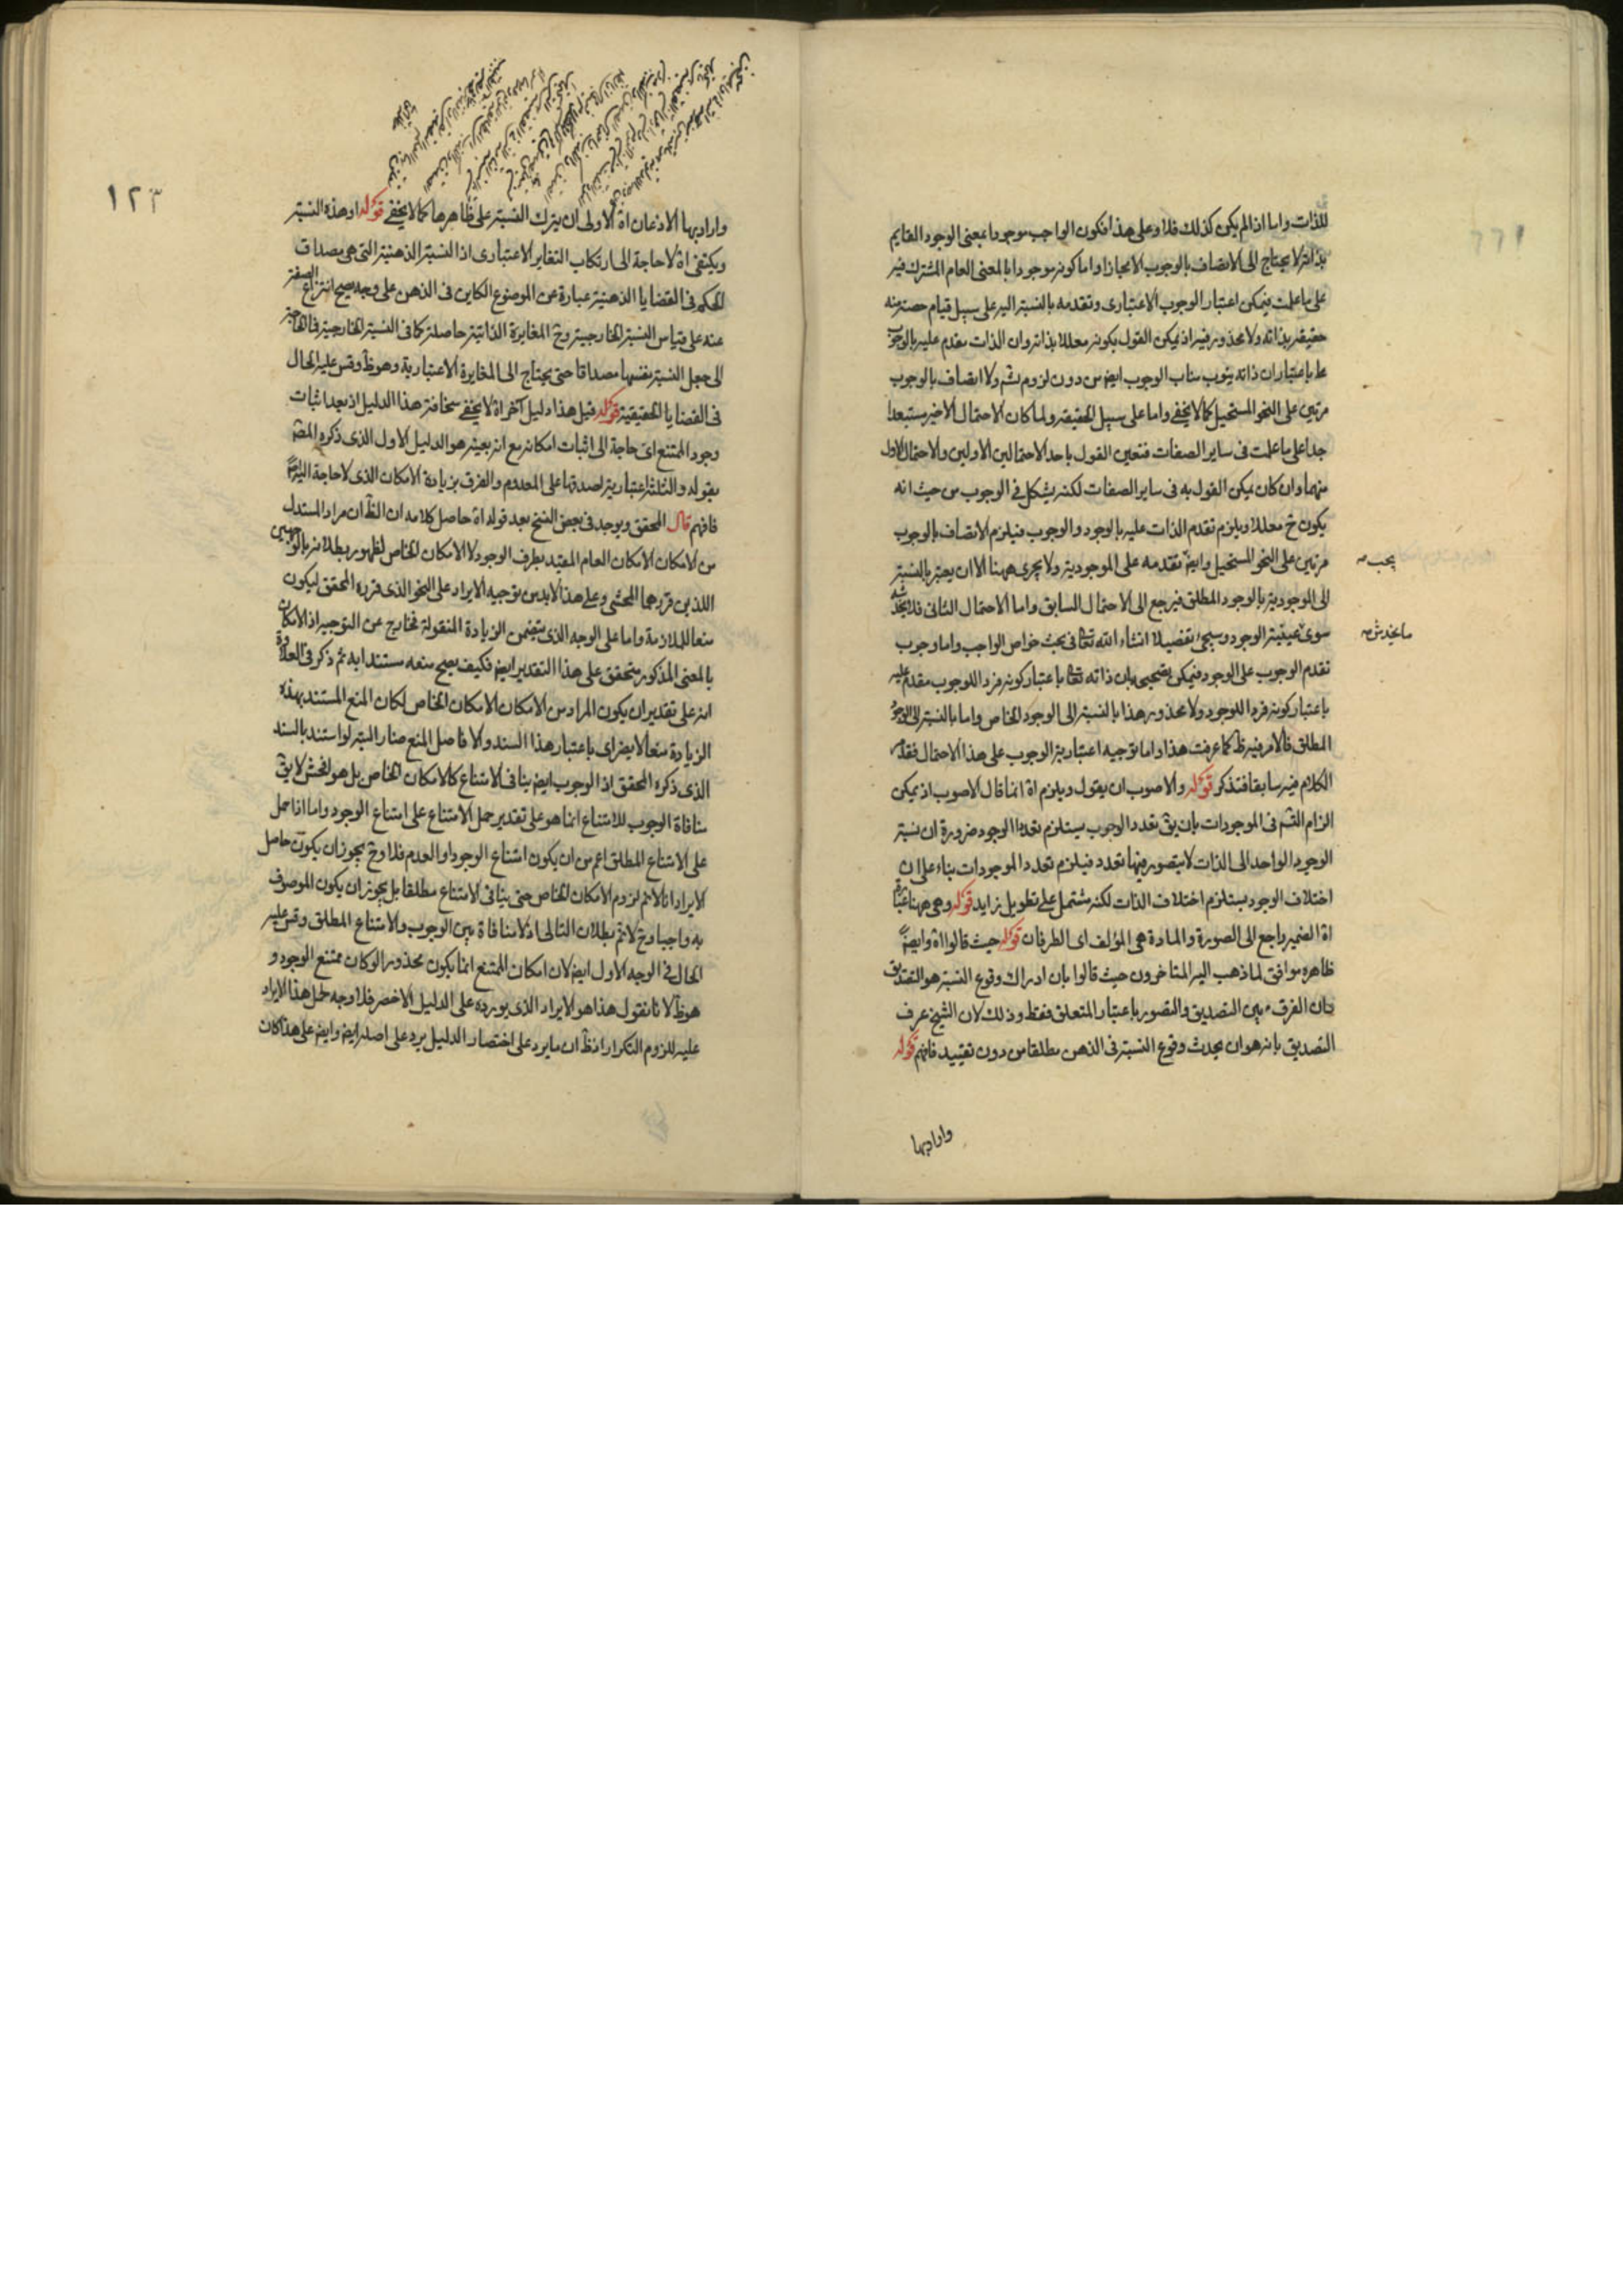 للذات واما اذا لم يكن كذلك فلا وعلى هذا فكون الواجب موجودا بمعنى الوجود القايم
بذاته لا يحتاج الى الاتصاف بالوجوب الا مجازا واما كونه موجودا بالمعنى العام المشترك فيه
على ما علمت فيمكن اعتبار الوجوب الاعتبارى وتقدمه بالنسبة اليه على سبيل قيام حصة منه
حقيقة بذاته ولا محذور فيه اذ يمكن القول بكونه معللا بذاته وان الذات مقدم عليه بالوجوب
باعتبار ان ذاته ينوب مناب الوجوب ايضا من دون لزوم تسـ ولا اتصاف بالوجوب
مرتين على النحو المستحيل كما لا يخفى واما على سبيل الحقيقة ولما كان الاحتمال الاخير مستبعدا
جدا على ما علمت فى ساير الصفات فتعين القول باحد الاحتمالين الاولين والاحتمال الاول
منهما وان كان يمكن القول به فى ساير الصفات لكنه يشكل فى الوجوب من حيث انه
يكون ح معللا ويلزم تقدم الذات عليه بالوجود والوجوب فيلزم الاتصاف بالوجوب
مرتين على النحو المستحيل وايضا تقدمه على الموجودية ولا يجرى ههنا الا ان يعتبر بالنسبة
الى الموجودية بالوجود المطلق فيرجع الى الاحتمال السابق واما الاحتمال الثانى فلا يخدشه
سوى عينية الوجود وسيجئ تفصيلا انشاء الله تعا فى بحث خواص الواجب واما وجوب
تقدم الوجوب على الوجود فيمكن تصحيحه بان ذاته تعا باعتبار كونه فردا للوجوب مقدم عليه
باعتبار كونه فردا للوجود ولا محذور هذا بالنسبة الى الوجود الخاص واما بالنسبة الى الوجود
المطلق فالامر فيه ظ كما عرفت هذا واما توجيه اعتبارية الوجوب على هذا الاحتمال فقد مر
الكلام فيه سابقا فتذكر قوله والاصوب ان يقول ويلزم اه انما قال الاصوب اذ يمكن
الزام التسـ فى الموجودات بان يق تعدد الوجوب يستلزم تعدد الوجود ضرورة ان نسبة
الوجود الواحد الى الذات لا يتصور فيها تعدد فيلزم تعدد الموجودات بناء على ان
اختلاف الوجود يستلزم اختلاف الذات لكنه مشتمل على تطويل زايد قوله وهى ههنا عبارة
اه الضمير راجع الى الصورة والمادة هى المؤلف اى الطرفان قوله حيث قالوا اه وايضا
ظاهره موافق لما ذهب اليه المتاخرون حيث قالوا بان ادراك وقوع النسبة هو التصديق
وان الفرق بين التصديق والتصور باعتبار المتعلق فقط وذلك لان الشيخ عرف
التصديق بانه هو ان يحدث وقوع النسبة فى الذهن مطلقا من دون تقييد فافهم قوله
وارادبها
يجب
ما يخدش
١٢٣
وارادبها الاذعان اه الاولى ان يترك النسبة على ظاهرها كما لا يخفى قوله او هذه النسبة
ويكتفى اه لا حاجة الى ارتكاب التغاير الاعتبارى اذ النسبة الذهنية التى هى مصداق
الحكم فى القضايا الذهنية عبارة عن الموضوع الكاين فى الذهن على وجه يصح انتزاع الصفة
عنه على قياس النسبة الخارجية وح المغايرة الذاتية حاصلة كما فى النسبة الخارجية فلا حاجة
الى جعل النسبة نفسها مصداقا حتى يحتاج الى المغايرة الاعتبارية وهو ظ وقس عليه الحال
فى القضايا الحقيقية قوله قيل هذا دليل آخر اه لا يخفى سخافة هذا الدليل اذ بعد اثبات
وجود الممتنع اى حاجة الى اثبات امكانه مع انه بعينه هو الدليل الاول الذى ذكره المصـ
بقوله والثلثة اعتبارية لصدقها على المعدوم والفرق بزيادة الامكان الذى لا حاجة اليه
فافهم قال المحقق ويوجد فى بعض النسخ بعد قوله اه حاصل كلامه ان الظ ان مراد المستدل
من الامكان الامكان العام المقيد بطرف الوجود لا الامكان الخاص لظهور بطلانه بالوجهين
اللذين قررهما المحشى وعلى هذا لابد من توجيه الايراد على النحو الذى قرره المحقق ليكون
منعا للملازمة واما على الوجه الذى يتضمن الزيادة المنقولة فخارج عن التوجيه اذ الامكان
بالمعنى المذكور متحقق على هذا التقدير ايضا فكيف يصح منعه مستندا به ثم ذكر فى العلاوة
انه على تقدير ان يكون المراد من الامكان الامكان الخاص لكان المنع المستند بهذه
الزيادة منعا لا يضر اى باعتبار هذا السند والا فاصل المنع ضار البتة لو استند بالسند
الذى ذكره المحقق اذ الوجوب ايضا ينافى الامتناع كالامكان الخاص بل هو افحش لا يق
منافاة الوجوب للامتناع انما هو على تقدير حمل الامتناع على امتناع الوجود واما اذا حمل
على الامتناع المطلق اعم من ان يكون امتناع الوجود او العدم فلا وح يجوز ان يكون حاصل
الايراد انا لا نم لزوم الامكان الخاص حتى ينافى الامتناع مطلقا بل يجوز ان يكون الموصوف
به واجبا وح لا نم بطلان التالى اذ لا منافاة بين الوجوب والامتناع المطلق وقس عليه
الحال فى الوجه الاول ايضا لان امكان الممتنع انما يكون محذورا لو كان ممتنع الوجود و
هو ظ لانا نقول هذا هو الايراد الذى يورده على الدليل الاخصر فلا وجه لحمل هذا الايراد
عليه للزوم التكرار اذ ظ ان ما يرد على اختصار الدليل يرد على اصله ايضا وايضا على هذا كان